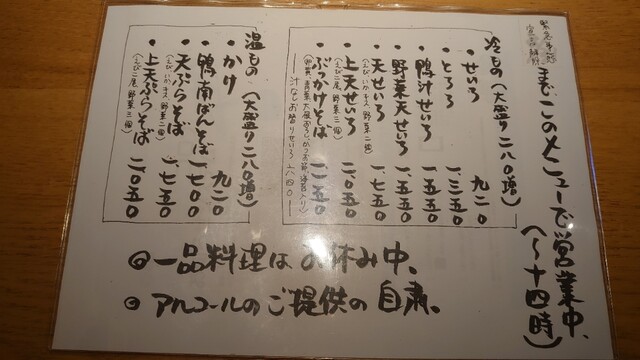 緊急事態
宣言解除
までこのメニューで営業中、
(〜十四時)
冷もの(大盛り二八〇増)
・せいろ 九二〇
・とろろ 一、三五〇
・鴨汁せいろ 一、五五〇
・野菜天せいろ 一、五五〇
・天せいろ 一、七五〇
(えび、いか、キス 野菜二個)
・上天せいろ 二、〇五〇
(えび二尾 野菜三個)
・ぶっかけそば 一、二五〇
汁なしお替りせいろ 八四〇
温もの(大盛り二八〇増)
・かけ 九二〇
・鴨南ばんそば 一、七〇〇
・天ぷらそば 一、七五〇
(えび、いか、キス 野菜二個)
・上天ぷらそば 二、〇五〇
(えび二尾 野菜三個)
◎一品料理はお休み中、
◎アルコールのご提供の自粛。